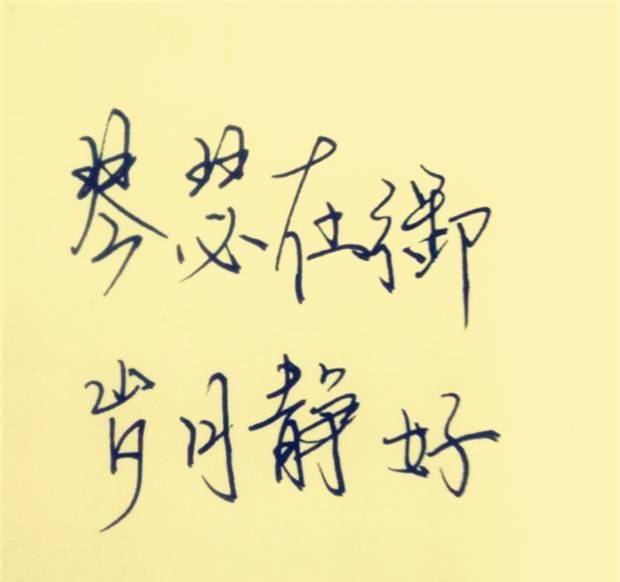 琴瑟在御
岁月静好